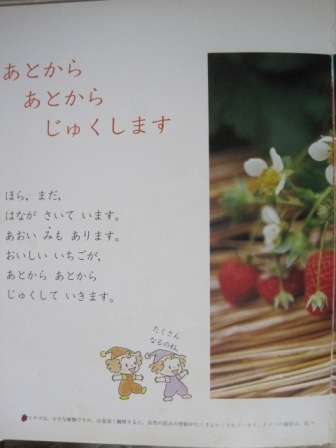 あとから
あとから
じゅくします
ほら，まだ，
はなが さいて います。
あおい みも あります。
おいしい いちごが，
あとから あとから
じゅくして いきます。
たくさん
なるのね。
イチゴは，小さな植物ですが，